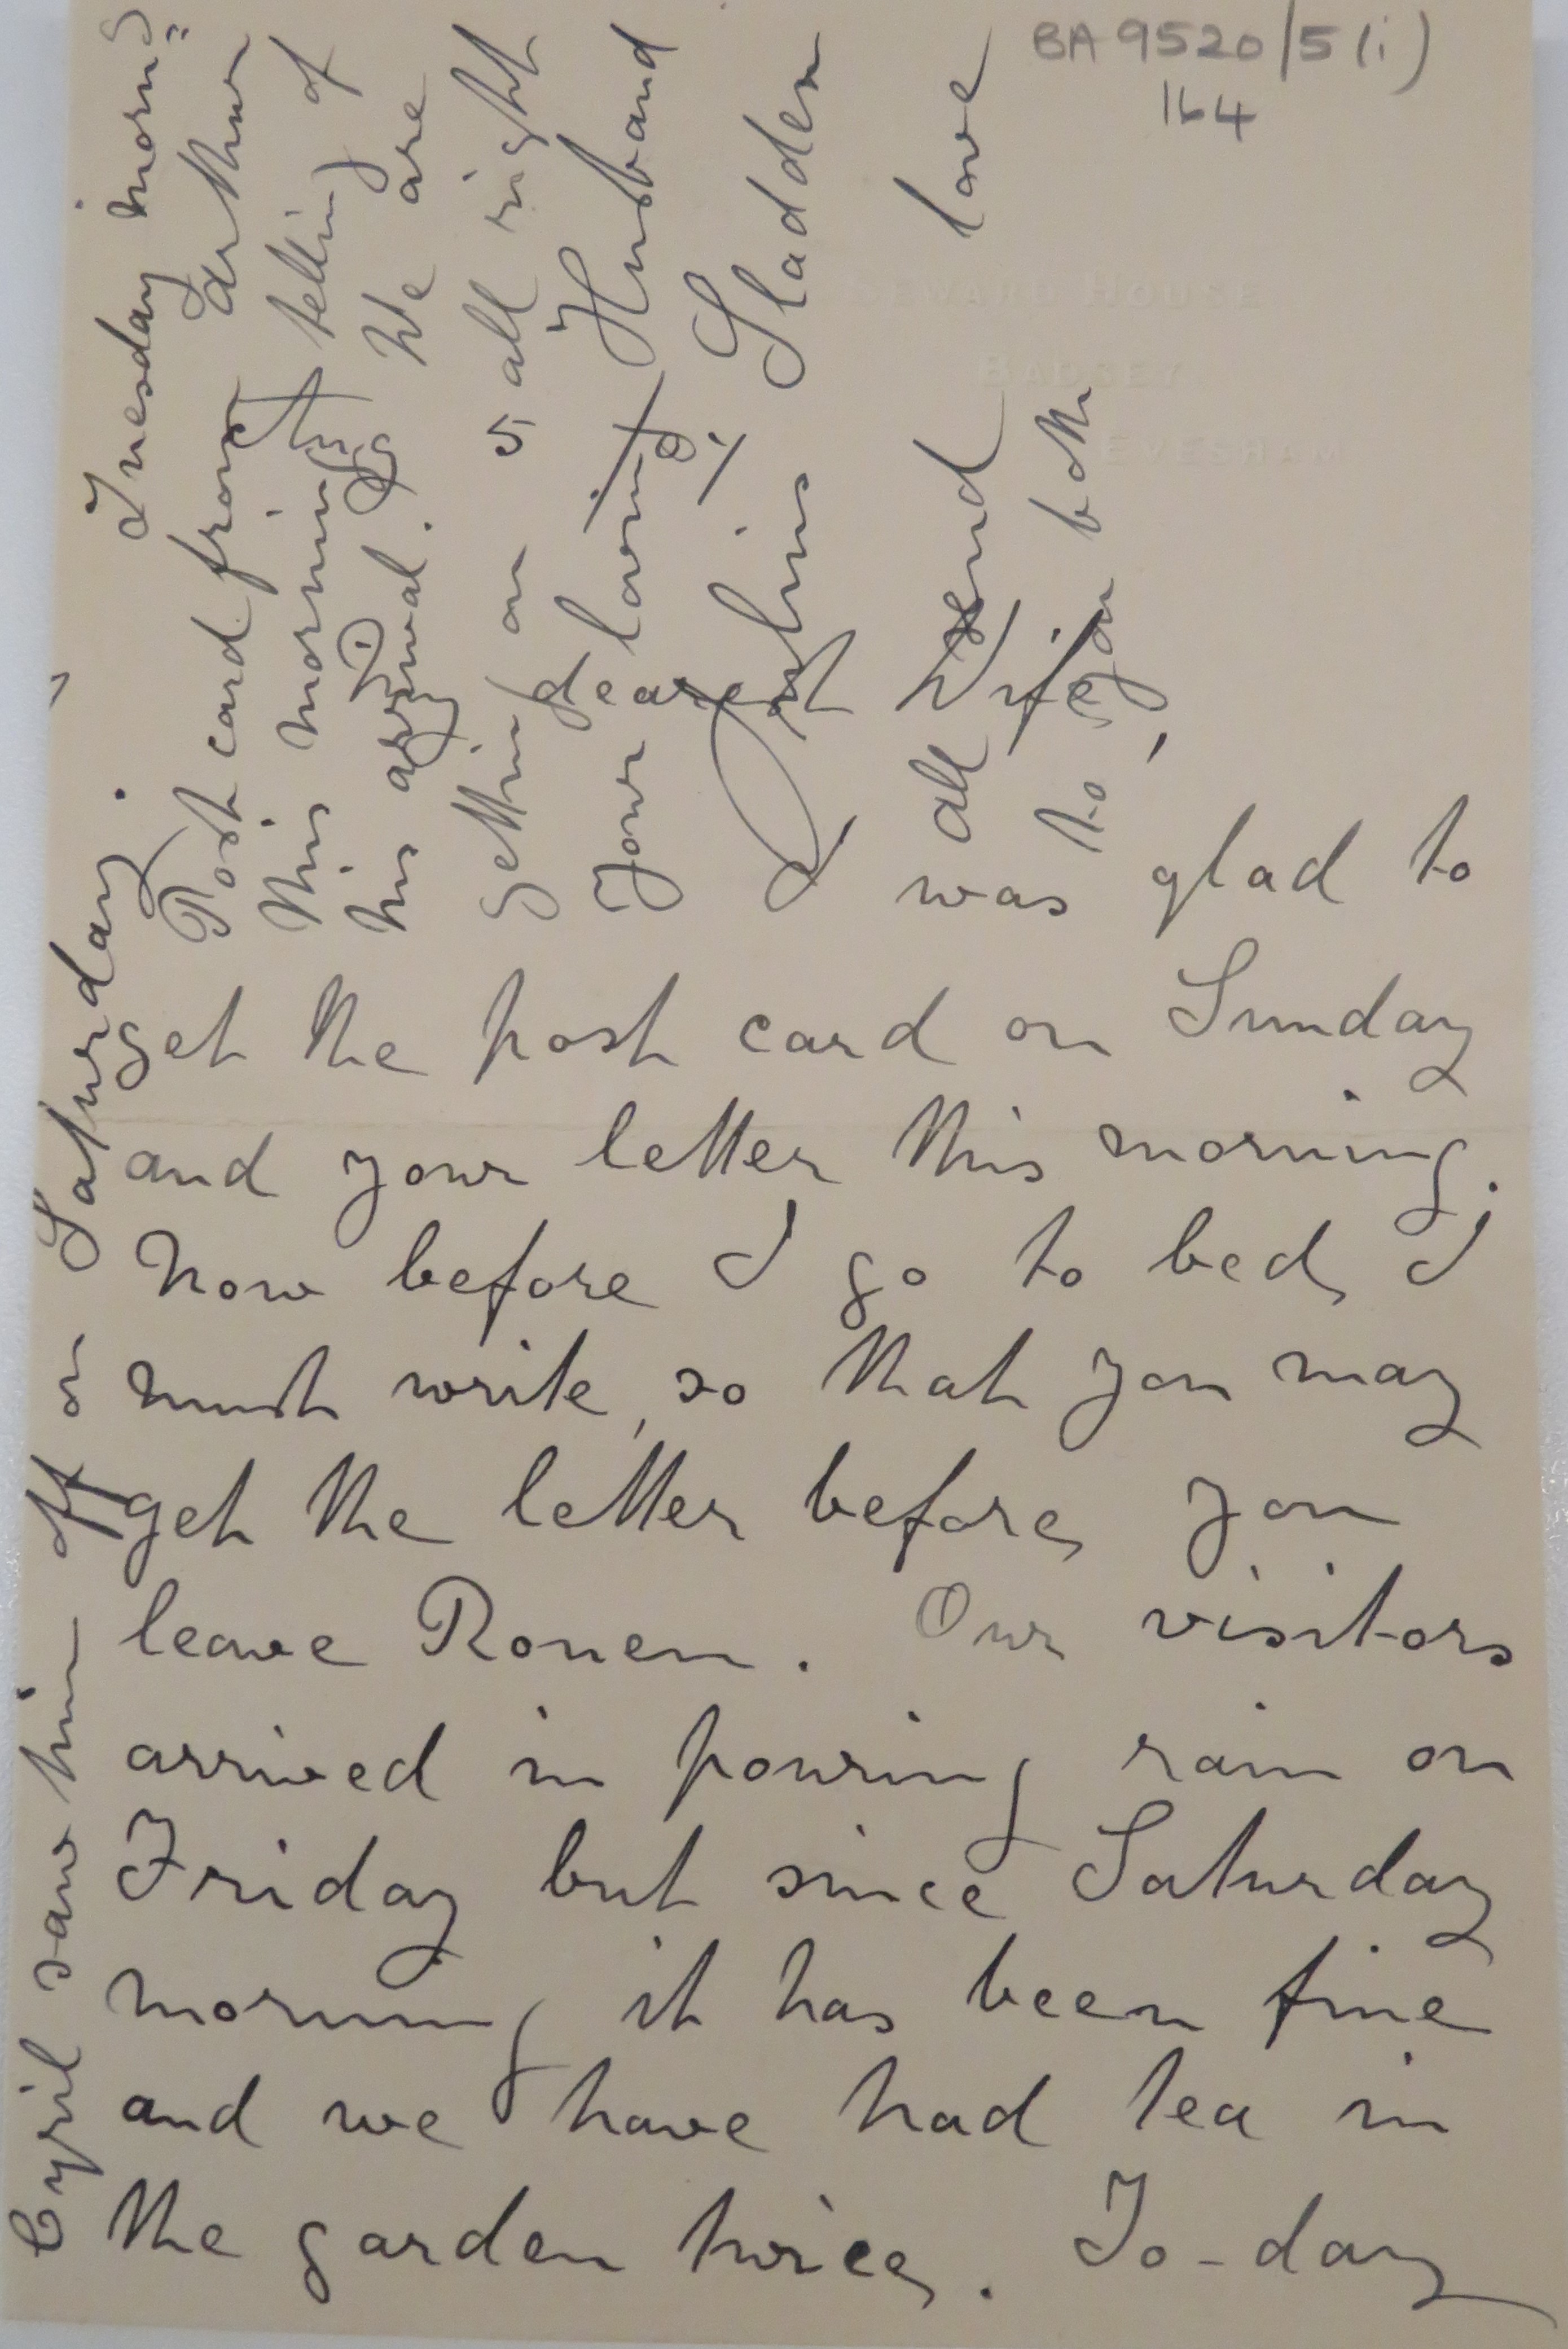 BA 9520/5(i)
164
WARD HOUSE
BADSEY
EVESHAM
My dearest Wife,
I was glad to
get the post card on Sunday
and your letter this morning.
Now before I go to bed, I
must write, so that you may
get the letter before you
leave Rouen. Our visitors
arrived in pouring rain on
Friday but since Saturday
morning it has been fine
and we have had tea in
the garden twice. To-day
Cyril saw him off on Saturday.
Tuesday morng
Post card from Arthur
this morning telling of
his arrival. We are
getting on all right
Your loving Husband
Julius Sladden
all send love
to you both